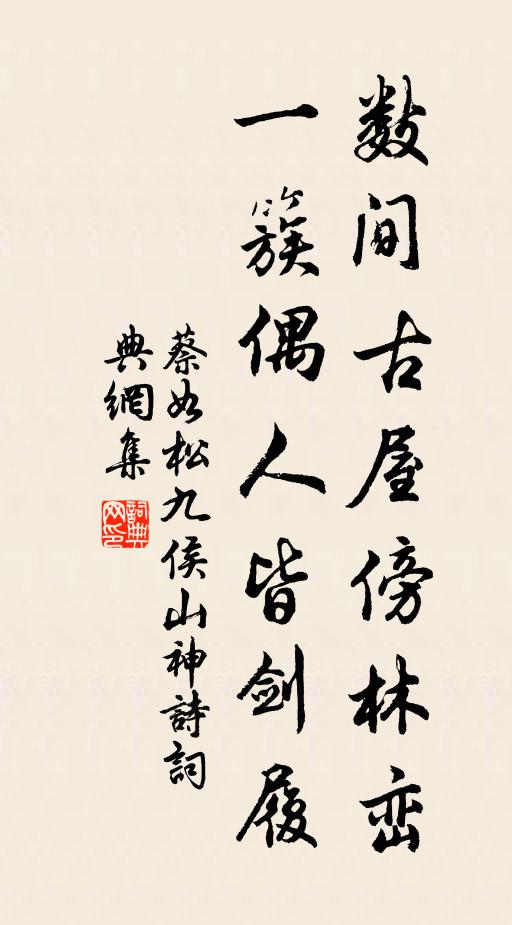 数间古屋傍林峦
一簇偶人皆剑履
蔡如松九侯山神詩詞
典網集
詞典网印